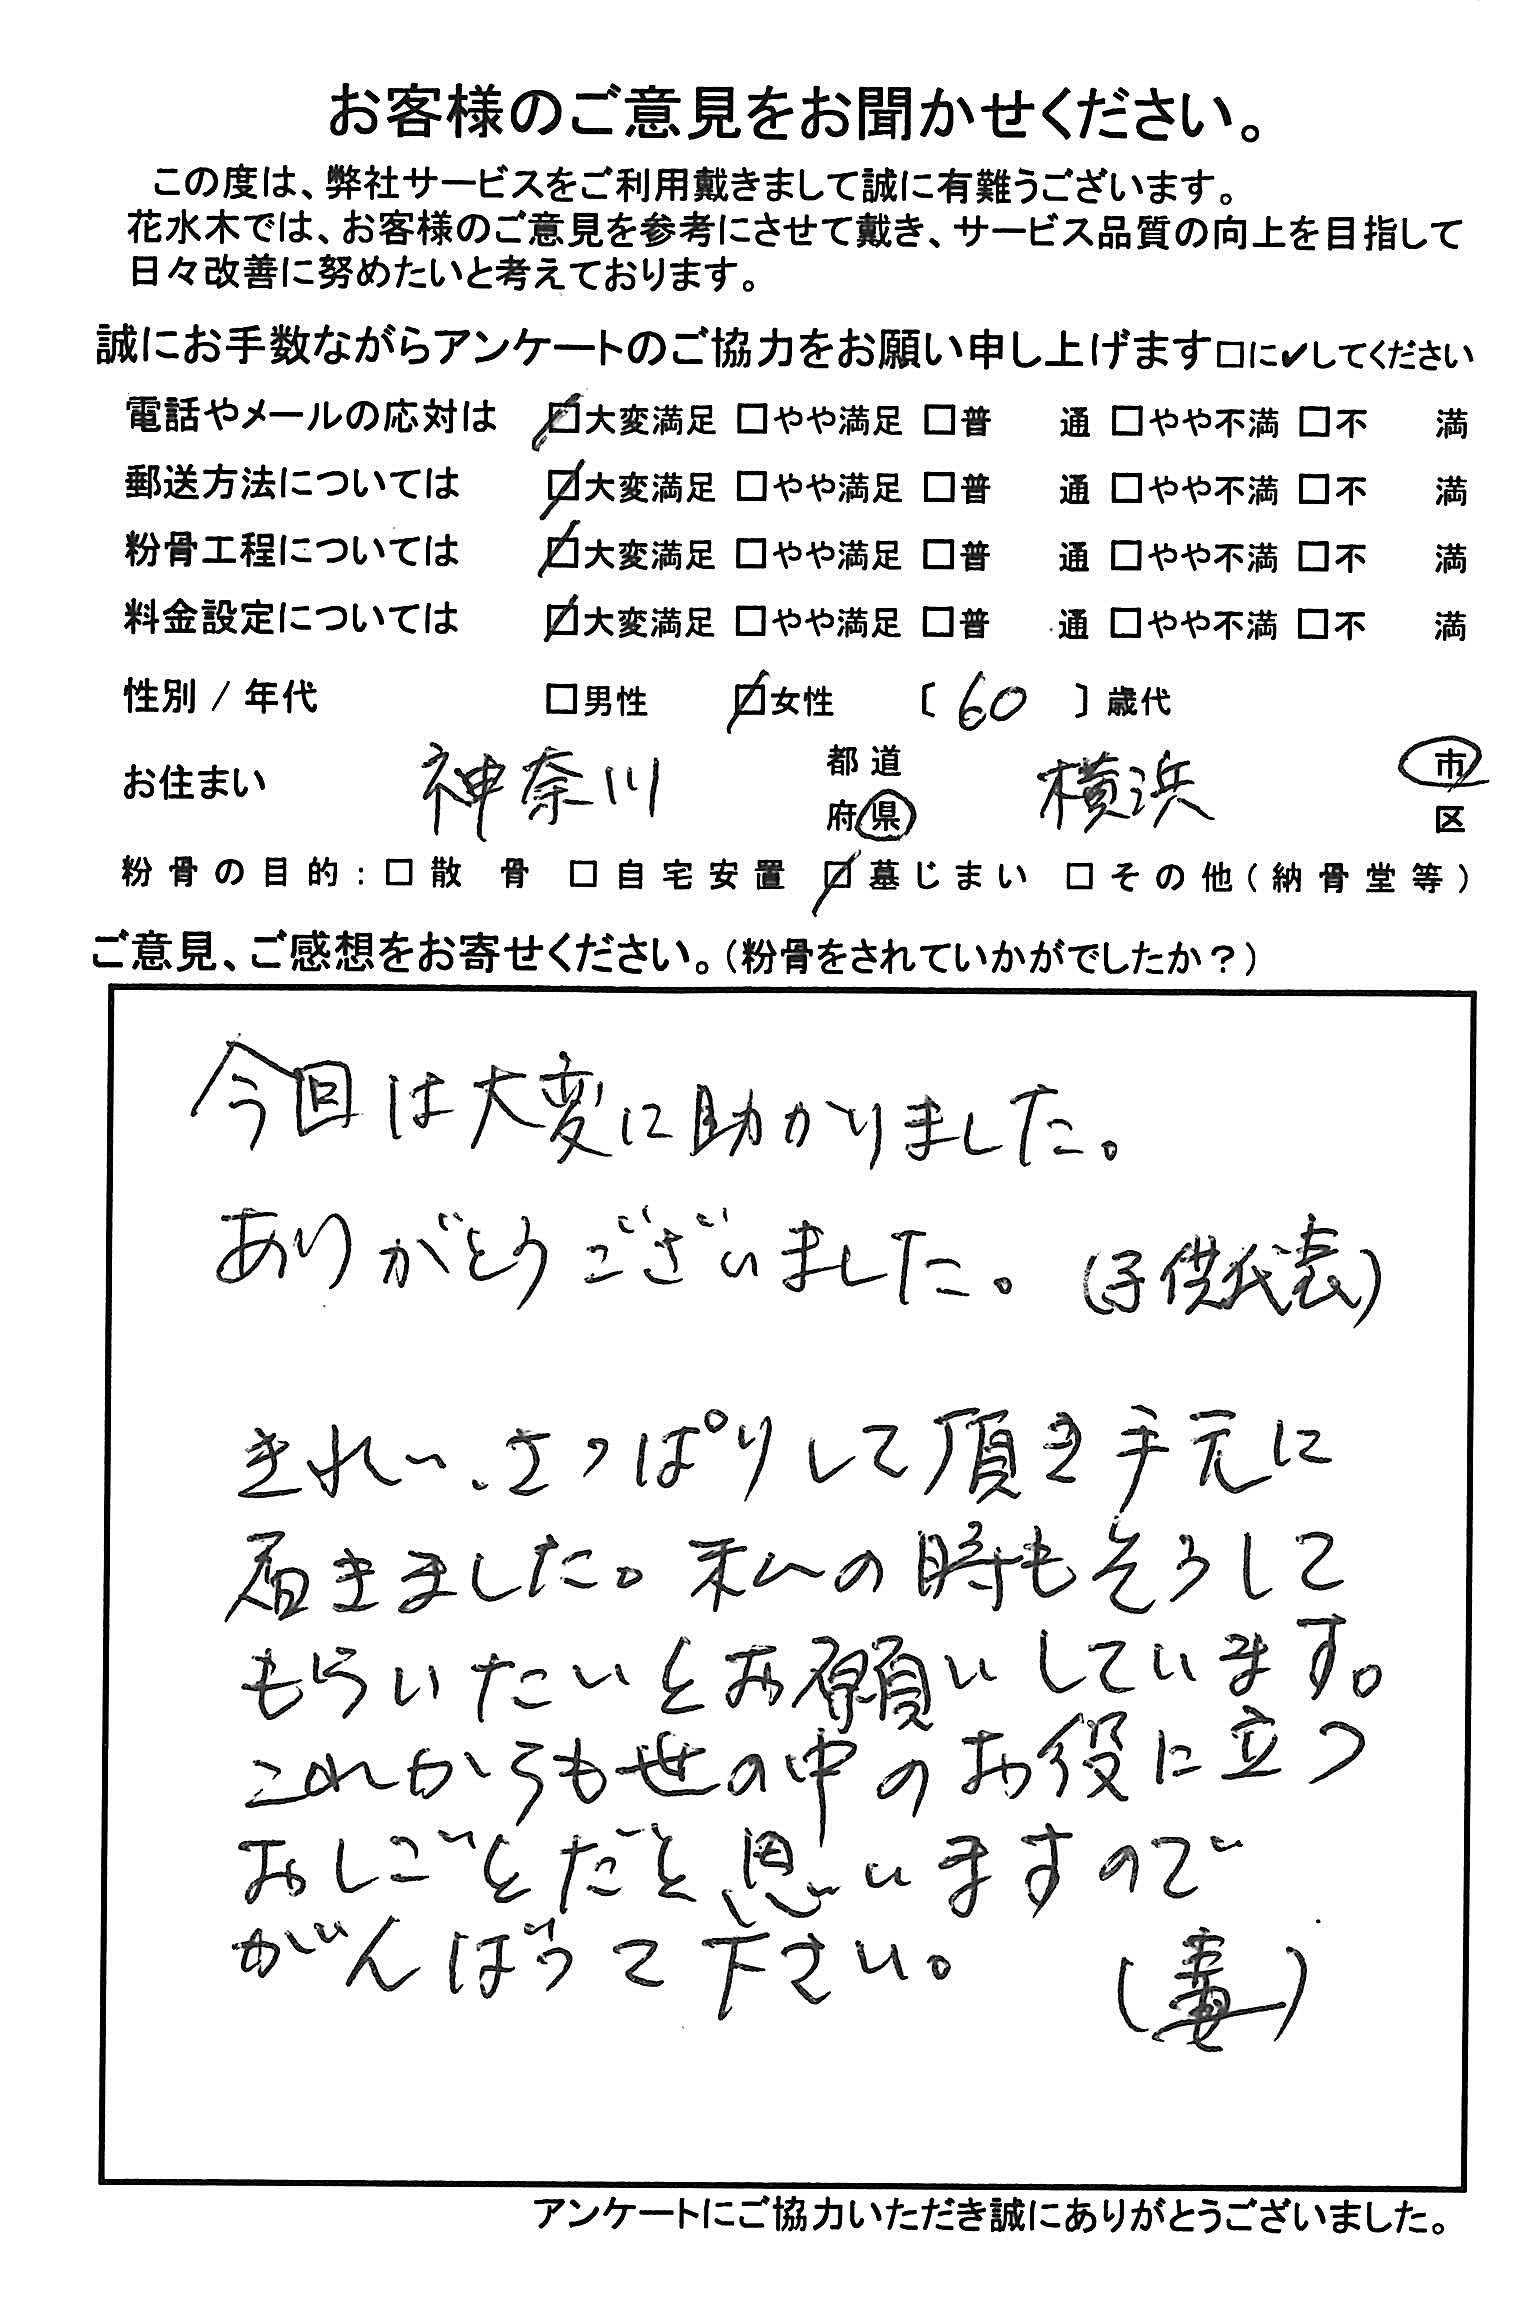 お客様のご意見をお聞かせください。
この度は、弊社サービスをご利用戴きまして誠に有難うございます。
花水木では、お客様のご意見を参考にさせて戴き、サービス品質の向上を目指して
日々改善に努めたいと考えております。
誠にお手数ながらアンケートのご協力をお願い申し上げます□に✔してください
電話やメールの応対は ☑大変満足 □やや満足 □普 通 □やや不満 □不 満
郵送方法については ☑大変満足 □やや満足 □普 通 □やや不満 □不 満
粉骨工程については ☑大変満足 □やや満足 □普 通 □やや不満 □不 満
料金設定については ☑大変満足 □やや満足 □普 通 □やや不満 □不 満
性別 / 年代 □男性 ☑女性 〔 60 〕歳代
お住まい 神奈川 都道府県 横浜 市区
粉骨の目的：□散 骨 □自宅安置 ☑墓じまい □その他（納骨堂等）
ご意見、ご感想をお寄せください。（粉骨をされていかがでしたか？）
今回は大変に助かりました。
ありがとうございました。(子供代表)
きれい、さっぱりして頂き手元に
届きました。私の時もそうして
もらいたいとお願いしています。
これからも世の中のお役に立つ
おしごとだと思いますので
がんばって下さい。 (妻)
アンケートにご協力いただき誠にありがとうございました。